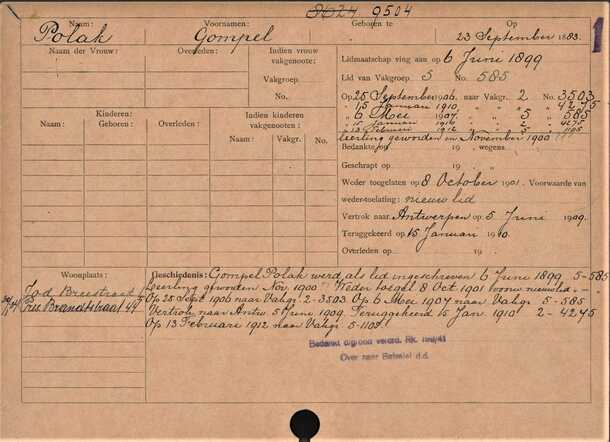 8624 9504
Naam: Voornamen: Geboren te Op
Polak Gompel 23 September 1883.
Naam der Vrouw: Overleden: Indien vrouw vakgenoote:
Vakgroep.
No.
Lidmaatschap ving aan op 6 Juni 1899
Lid van Vakgroep 5 No. 585
Op 25 September 1906, naar Vakgr. 2 No. 3503
„ 15 Januari 1910, „ „ 4275
„ 6 Mei 1907, „ „ 5 „ 585
„ 15 Januari 1910 „ 2 „ 4275
„ 13 Februari 1912 „ 5 „ 1105
Kinderen: Indien kinderen vakgenooten:
Naam: Geboren: Overleden: Naam: Vakgr. No.
Leerling geworden in November 1900
Bedankt op 19 , wegens
Geschrapt op 19 „
Weder toegelaten op 8 October 1901. Voorwaarde van
weder-toelating: nieuw lid
Vertrok naar Antwerpen op 5 Juni 1909.
Teruggekeerd op 15 Januari 1910.
Overleden op 19 .
Woonplaats: Geschiedenis: Gompel Polak werd als lid ingeschreven 6 Juni 1899 5-585
Jod. Breestraat
Leerling geworden Nov. 1900 Weder toegel. 8 Oct 1901 voorw. nieuw lid.
Pres Brandstraat 49
Op 25 Sept. 1906 naar Vakgr. 2-3503. Op 6 Mei 1907 naar Vakgr. 5-585.
Vertrok naar Antw. 5 Juni 1909. Teruggekeerd 15 Jan. 1910 2-4275
Op 13 Februari 1912 naar Vakgr. 5-1105.
Bedankt
Over naar
d.d.